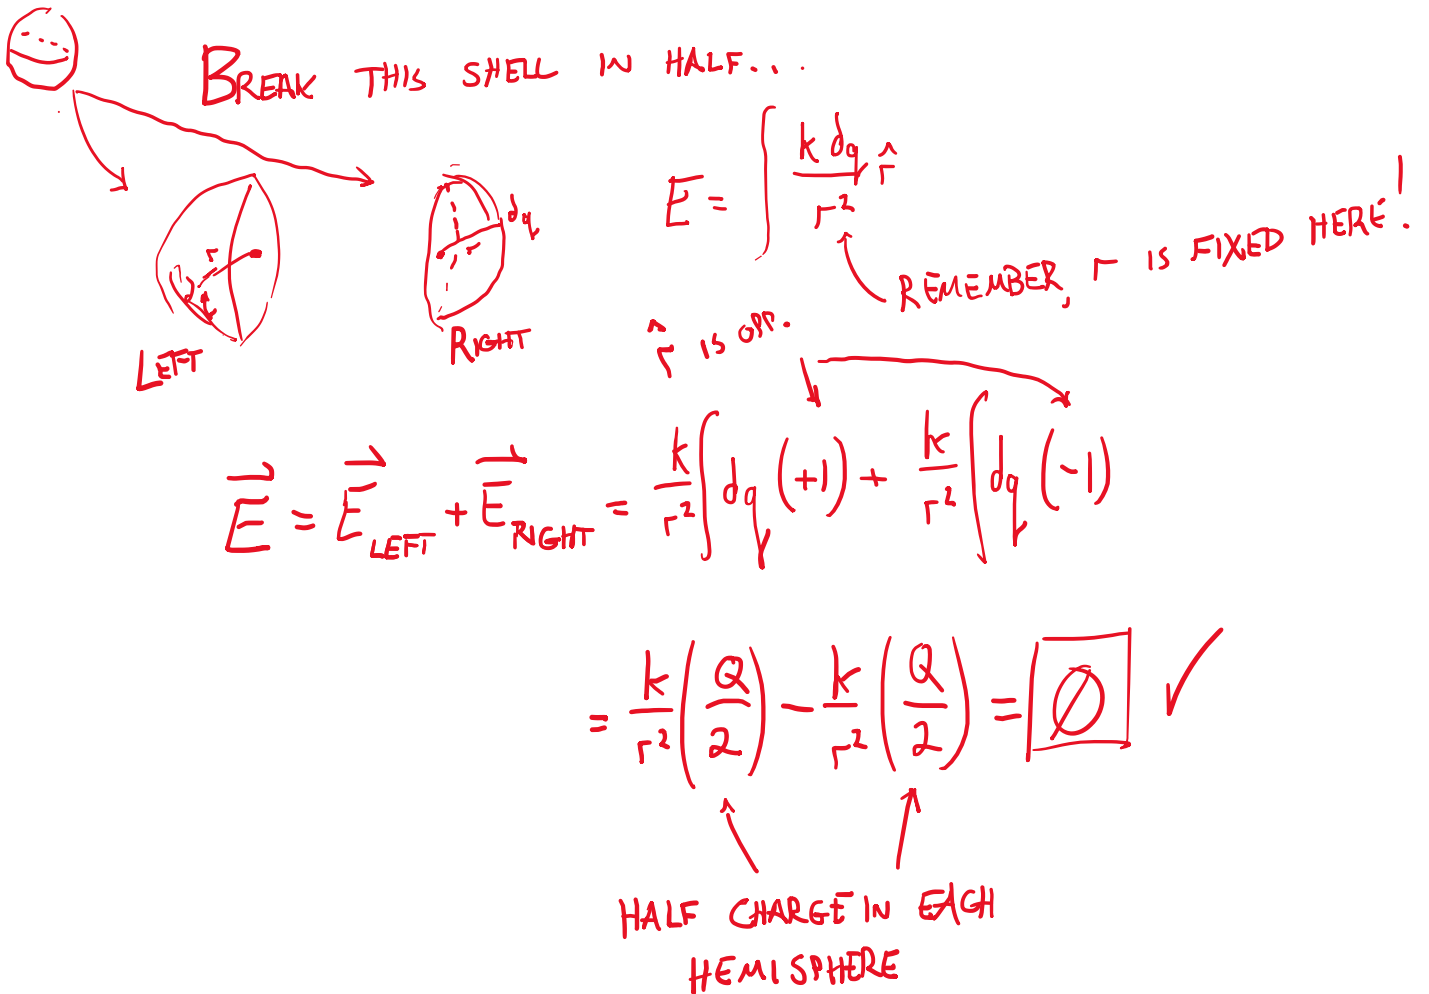 BREAK THIS SHELL IN HALF...
E = ∫ k dq / r² r̂
dq
r
r
dq
REMEMBER, r IS FIXED HERE!
LEFT
RIGHT
r̂ IS OPP.
E⃗ = E⃗_LEFT + E⃗_RIGHT = k/r² ∫ dq (+1) + k/r² ∫ dq (-1)
= k/r² (Q/2) - k/r² (Q/2) = ∅ ✓
HALF CHARGE IN EACH
HEMISPHERE